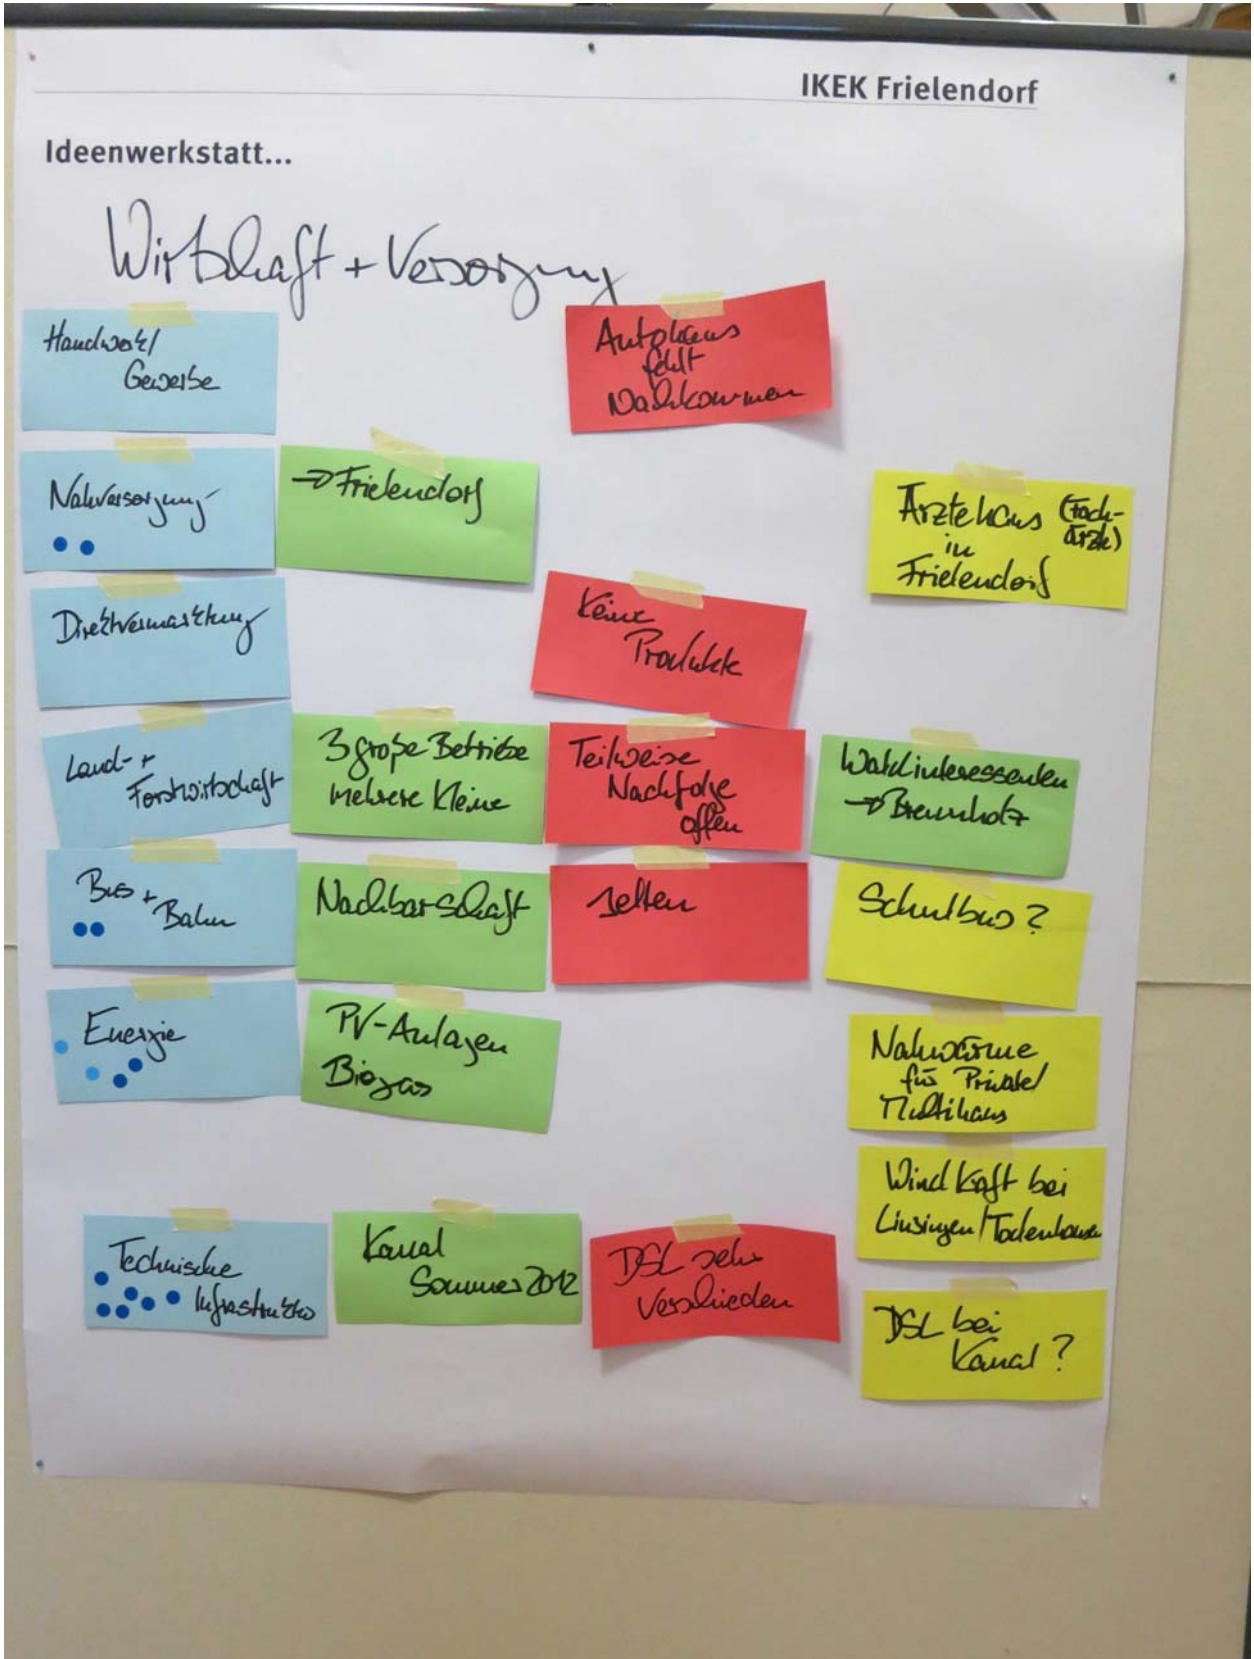 IKEK Frielendorf
Ideenwerkstatt...
Wirtschaft + Versorgung
Handwerk/
Gewerbe
Autohaus
fehlt
Nachkommen
Nahversorgung
→ Frielendorf
Ärztehaus (Fach-
ärzte)
in
Frielendorf
Direktvermarktung
Keine
Produkte
Land- +
Forstwirtschaft
3 große Betriebe
mehrere Kleine
Teilweise
Nachfolge
offen
Waldinteressenten
→ Brennholz
Bus +
Bahn
Nachbarschaft
selten
Schulbus?
Energie
PV-Anlagen
Biogas
Nahwärme
für Private/
Multihaus
Windkraft bei
Linsingen/Todenhausen
Technische
Infrastruktur
Kanal
Sommer 2012
DSL sehr
verschieden
DSL bei
Kanal?